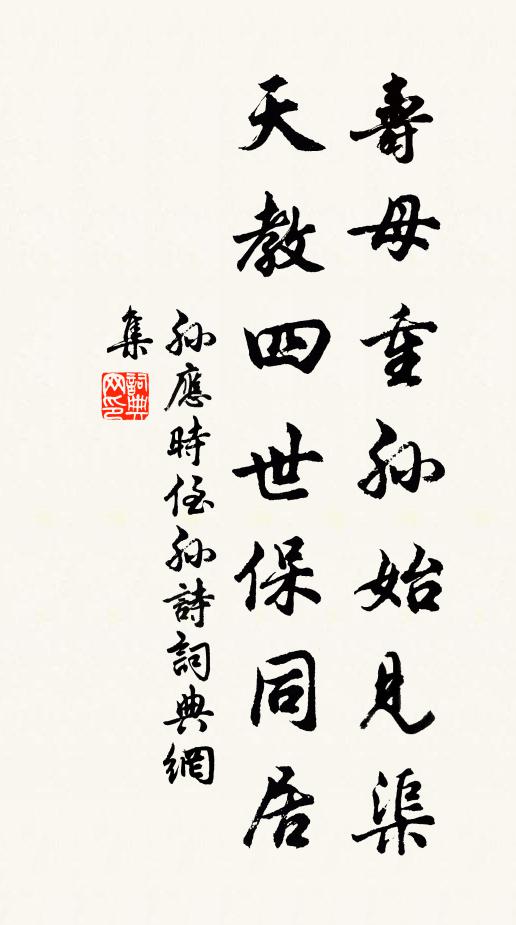 壽母重孫始見渠
天教四世保同居
孫應時侄孫詩詞典網
集
詞典網印